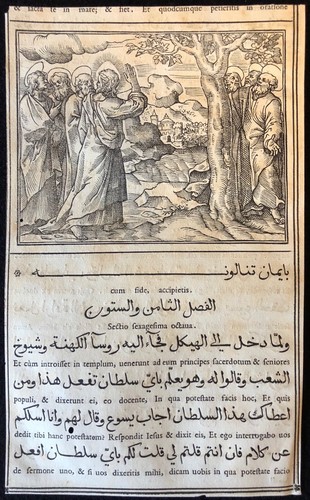 & jacta te in mare; & fiet. Et quodcumque petieritis in oratione
بايمان تنالونه
cum fide, accipietis.
الفصل الثامن والستون
Sectio sexagesima octaua.
ولما دخل الي الهيكل فجآ اليه روسآ الكهنة وشيوخ
Et cùm introisset in templum, uenerunt ad eum principes sacerdotum & seniores
الشعب وقالوا له وهو يعلم باي سلطان تفعل هذا ومن
populi, & dixerunt ei, eo docente, In qua potestate facis hoc, Et quis
اعطاك هذا السلطان اجاب يسوع وقال لهم وانا اسلكم
dedit tibi hanc potestatem? Respondit Iesus & dixit eis, Et ego interrogabo uos
عن كلام فان انتم قلتم لي قلت لكم باي سلطان افعل
de sermone uno, & si uos dixeritis mihi, dicam uobis in qua potestate facio